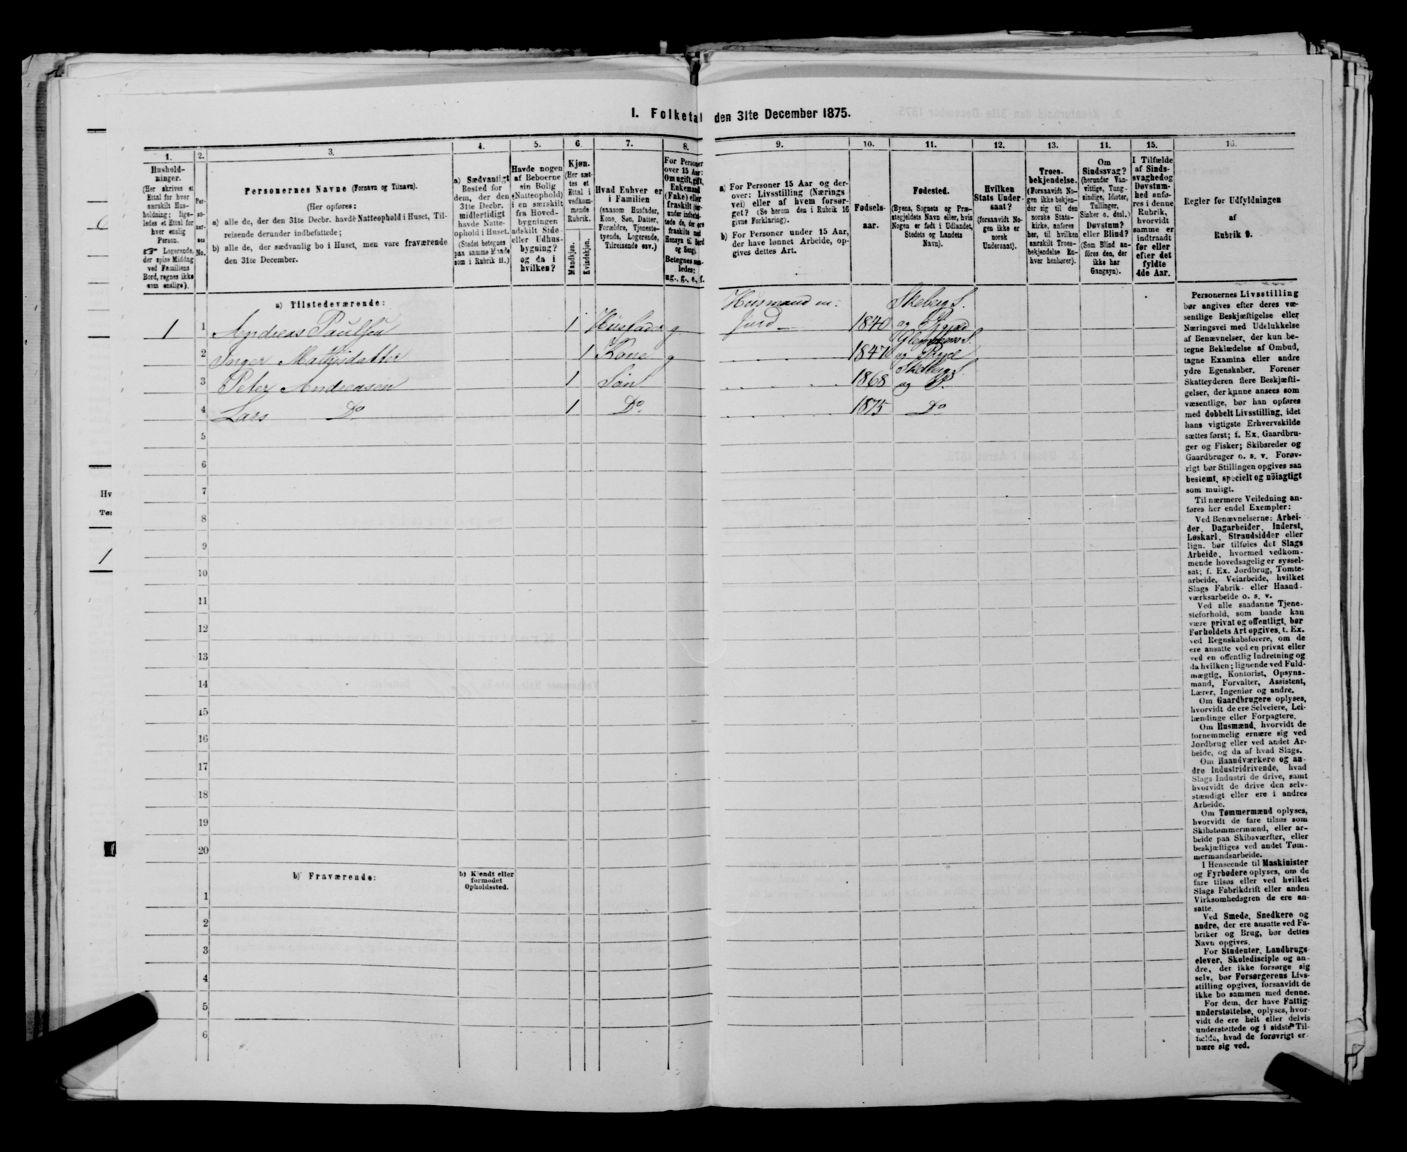 I. Folketal den 31te December 1875.
1.
2.
3.
4.
5.
6.
7.
8.
9.
10.
11.
12.
13.
14.
15.
16.
Personernes Navne (Fornavn og Tilnavn).
(Her opføres:
a) alle de, der den 31te Decbr. havde Natteophold i Huset, Til-
reisende derunder indbefattede;
b) alle de, der sædvanlig bo i Huset, men vare fraværende
den 31te December.
a) Sædvanligt
Bosted for
dem, der den
31te Decbr.
midlertidigt
havde Natte-
ophold i Huset.
Havde nogen
af Beboerne
sin Bolig
(Natteophold)
i en særskilt
fra Hoved-
bygningen
adskilt Side-
eller Udhus-
bygning?
og da i
hvilken?
Kjøn.
Mandkjøn.
Kvindekjøn.
Hvad Enhver er
i Familien
(saasom Husfader,
Kone, Søn, Datter,
a) For Personer 15 Aar og der-
over: Livsstilling (Nærings
vei) eller af hvem forsør-
get? (Se herom den i Rubrik 16
givne Forklaring).
b) For Personer under 15 Aar,
der have lønnet Arbeide, op-
gives dettes Art.
Fødsels-
aar.
Fødested.
(Byens, Sognets og Præ-
stegjeldets Navn eller, hvis
Nogen er født i Udlandet,
Stedets og Landets
Navn).
Hvilken
Stats Under-
saat?
(forsaavidt No-
gen ikke er
norsk
Undersaat).
Troes-
bekjendelse.
Om
Sindssvag?
Døvstum?
eller Blind?
I Tilfælde
af Sinds-
svaghed og
Døvstum-
hed anfø-
res i denne
Rubrik,
hvorvidt
samme er
indtraadt
før eller
efter det
fyldte
4de Aar.
Regler for Udfyldningen
af
Rubrik 9.
a) Tilstedeværende:
1 1 Andreas Paulsen 1 Husfader g Husmand m: Jord 1840
2 Inger 1 Kone g 1847
3 Peter Andreasen 1 Søn 1868
4 Lars Do 1 Do 1875 Do
5
6
7
8
9
10
11
12
13
14
15
16
17
18
19
20
b) Fraværende:
b) Kjendt eller
formodet
Opholdssted.
1
2
3
4
5
6
Personernes Livsstilling
bør angives efter deres væ-
sentlige Beskjæftigelse eller
Næringsvei med Udelukkelse
af Benævnelser, der kun be-
tegne Beklædelse af Ombud,
tagne Examina eller andre
ydre Egenskaber. Forener
Skatteyderen flere Beskjæfti-
gelser, der kunne ansees som
væsentlige, bør han opføres
med dobbelt Livsstilling, idet
hans vigtigste Erhvervskilde
sættes først; f. Ex. Gaardbru-
ger og Fisker; Skibsreder og
Gaardbruger o. s. v. Forøv-
rigt bør Stillingen opgives saa
bestemt, specielt og nøiagtigt
som muligt.
Til nærmere Veiledning an-
føres her endel Exempler:
Ved Benævnelserne: Arbei-
der, Dagarbeider, Inderst,
Løskarl, Strandsidder eller
lign. bør tilføies det Slags
Arbeide, hvormed vedkom-
mende hovedsagelig er syssel-
sat; f. Ex. Jordbrug, Tomte-
arbeide, Veiarbeide, hvilket
Slags Fabrik- eller Haand-
værksarbeide o. s. v.
Ved alle saadanne Tjene-
steforhold, som baade kan
være privat og offentligt, bør
Forholdets Art opgives, t. Ex.
ved Regnskabsførere, om de
ere ansatte ved en privat eller
ved en offentlig Indretning og
da hvilken; lignende ved Fuld-
mægtig, Kontorist, Opsyns-
mand, Forvalter, Assistent,
Lærer, Ingeniør og andre.
Om Gaardbrugere oplyses,
hvorvidt de ere Selveiere, Lei-
lændinge eller Forpagtere.
Om Husmænd, hvorvidt de
fornemmelig ernære sig ved
Jordbrug eller ved andet Ar-
beide, og da af hvad Slags.
Om Haandværkere og an-
dre Industridrivende, hvad
Slags Industri de drive, samt
hvorvidt de drive den selv-
stændigt eller ere i andres
Arbeide.
Om Tømmermænd oplyses,
hvorvidt de fare tilsøs som
Skibstømmermænd, eller ar-
beide paa Skibsværfter, eller
beskjæftiges ved andet Tøm-
mermandsarbeide.
I Henseende til Maskinister
og Fyrbødere oplyses, om de
fare tilsøs eller ved hvilket
Slags Fabrikdrift eller anden
Virksomhedsgren de ere an-
satte.
Ved Smede, Snedkere og
andre, der ere ansatte ved Fa-
briker og Brug, bør dettes
Navn opgives.
For Studenter, Landbrugs
elever, Skoledisciple og an-
dre, der ikke forsørge sig
selv, bør Forsørgerens Livs-
stilling opgives, forsaavidt de
ikke bo sammen med denne.
For dem, der have Fattig-
understøttelse, oplyses, hvor-
vidt de ere helt eller delvis
understøttede og i sidste Til-
fælde, hvad de forøvrigt er-
nære sig ved.